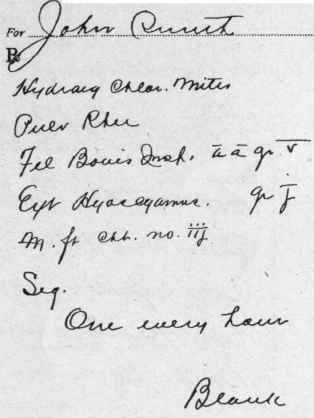 For John Smith
℞
Hydrarg Chlor. Mitis
Pulv Rhei
Fel Bovis Insp. āā gr v̅
Ext Hyoscyamus. gr j̅
M. ft cht. no. iij
Sig.
One every hour
Blank